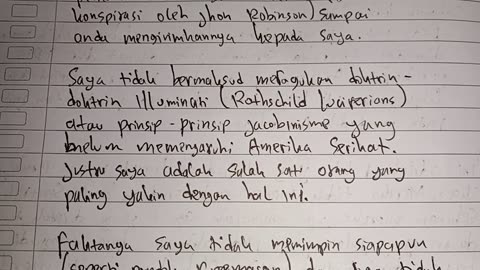 konspirasi oleh jhon Robinson) Sampai
anda mengirimkannya kepada saya.
Saya tidak bermaksud meragukan doktrin-
doktrin Illuminati (Rothschild Luciferions)
atau prinsip-prinsip jacobinisme yang
belum memengaruhi Amerika Serikat.
justru saya adalah salah satu orang yang
paling yakin dengan hal ini.
Faktanya saya tidak memimpin siapapun